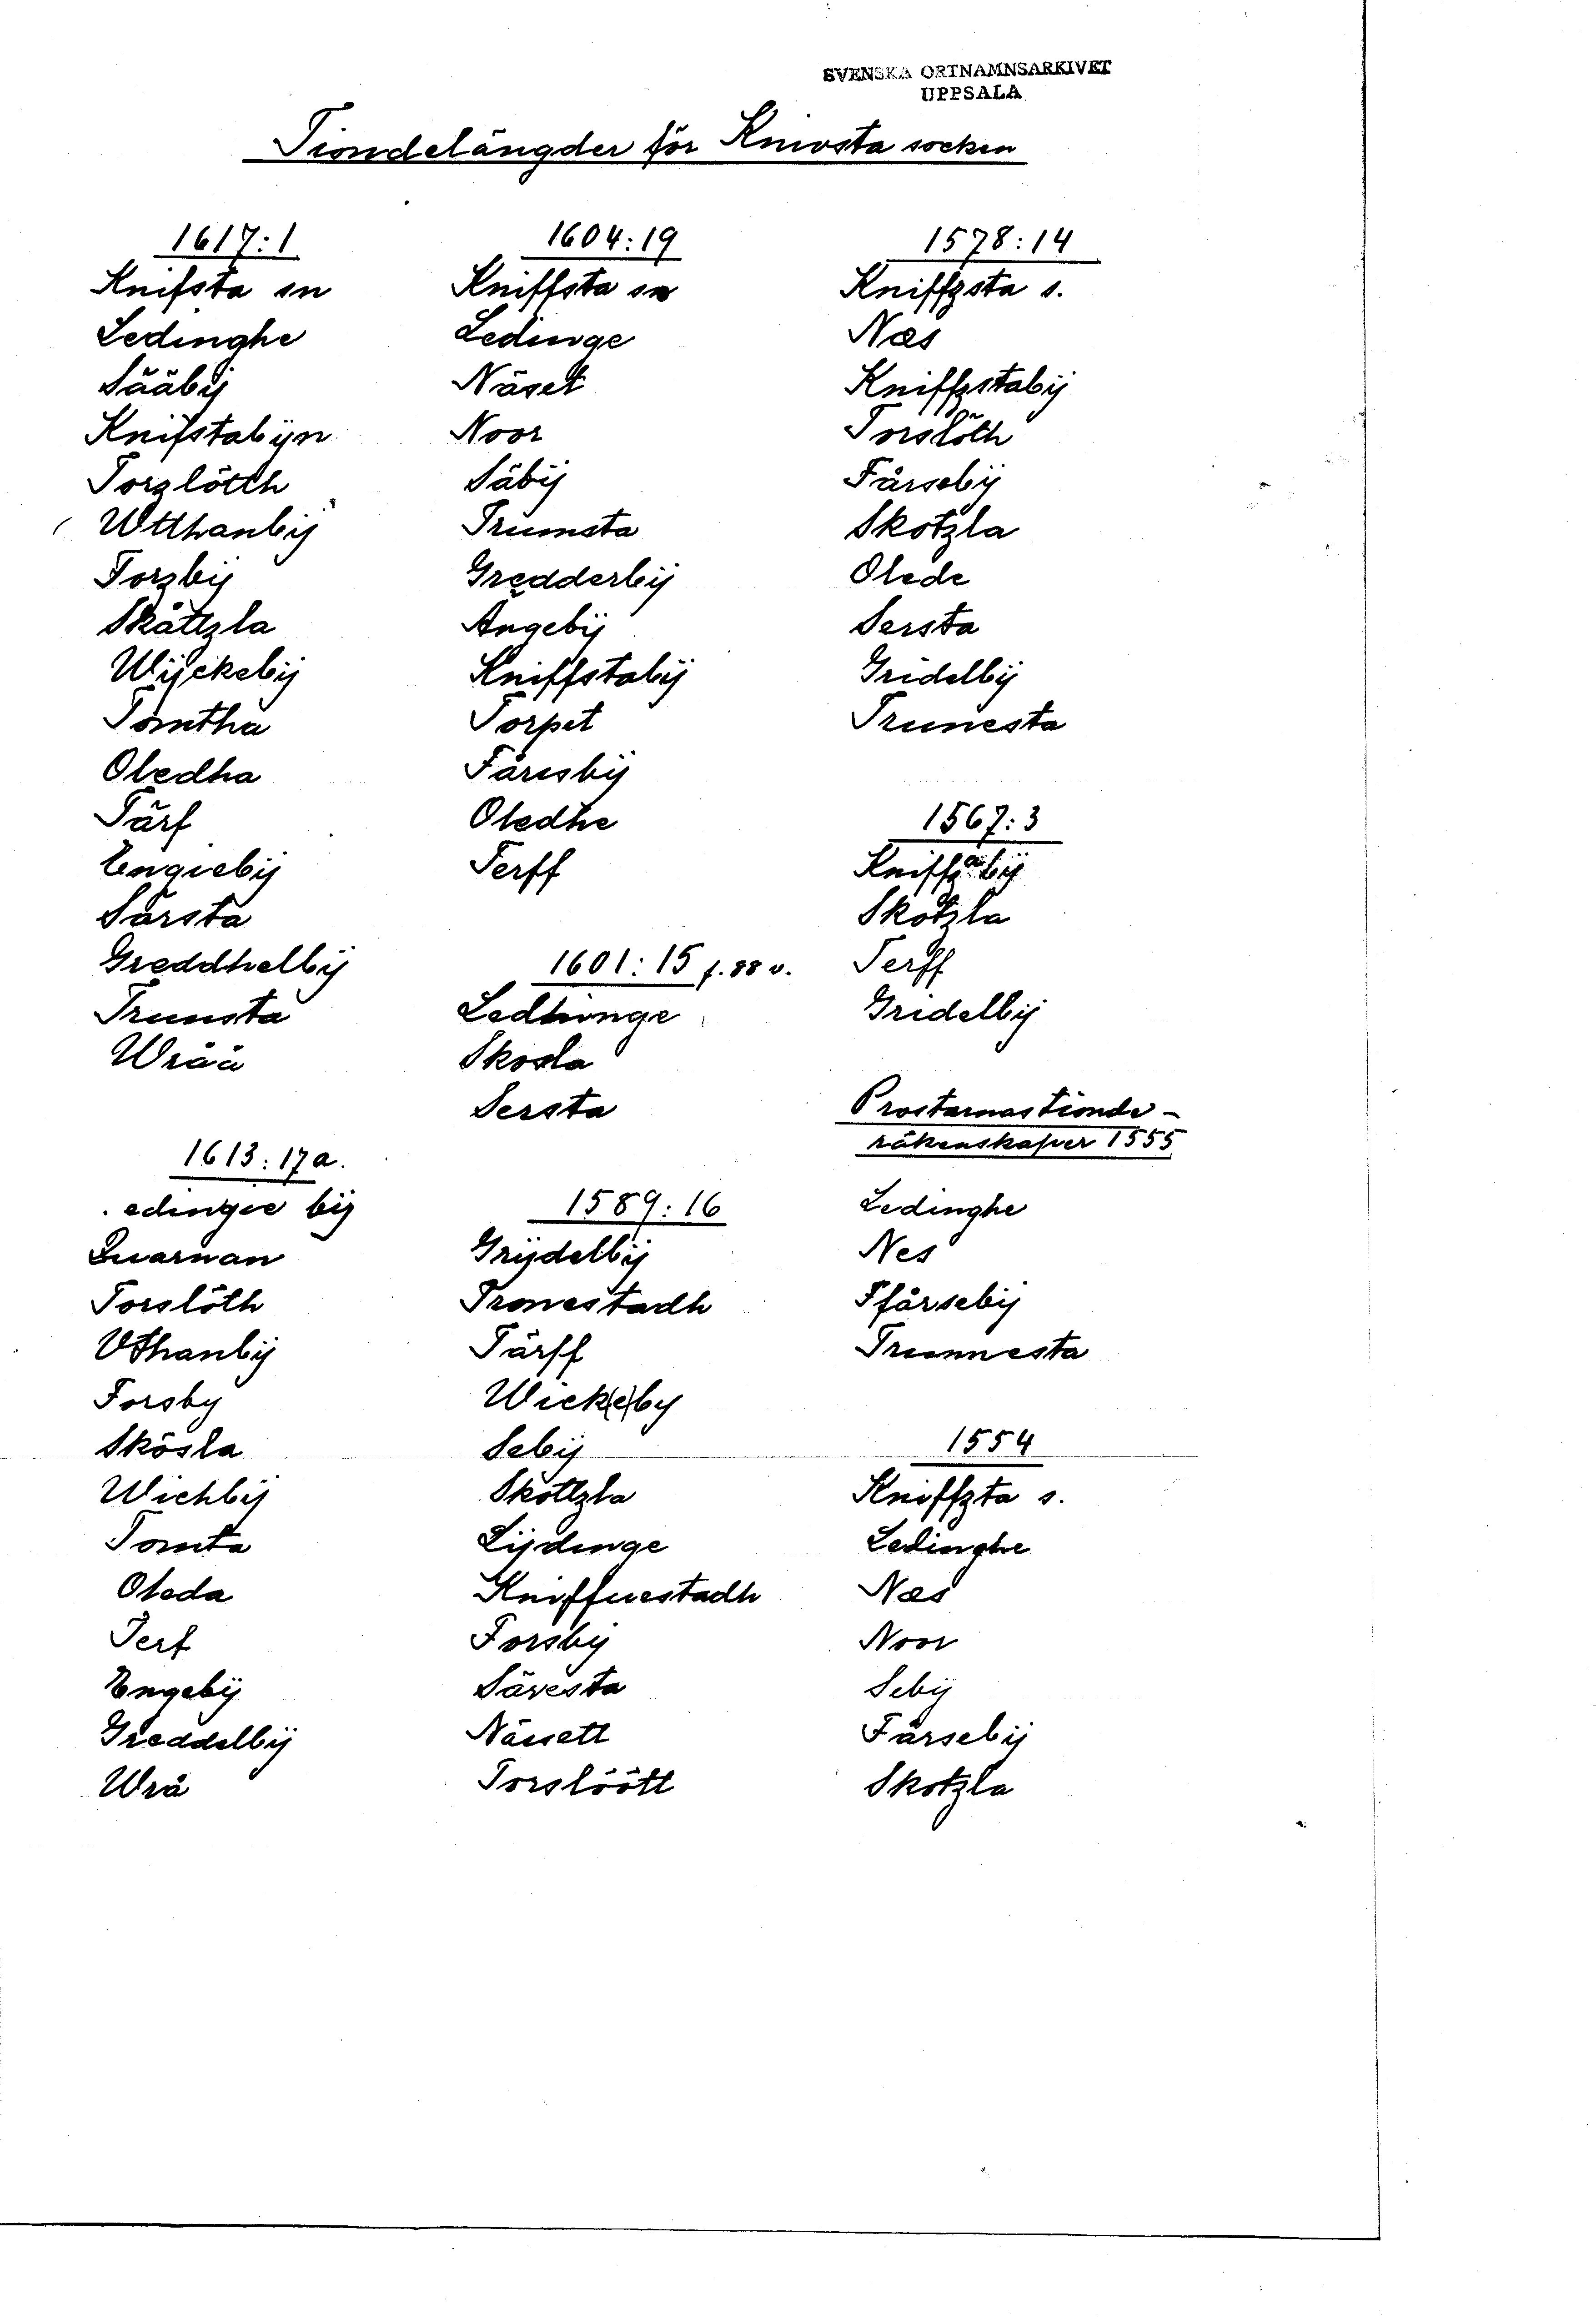 SVENSKA ORTNAMNSARKIVET
UPPSALA
Tiondelängder för Knivsta socken
1617:1
Knifsta sn
Ledinghe
Sääbij
Knifstabijn
Torzlötth
Wtthanbij
Forzbij
Skåttzla
Wijckebij
Tomtha
Oledha
Tärf
Engiebij
Särsta
Greddhelbij
Trunsta
Wråå
1613:17a.
.edingie bij
Quarnan
Torslöth
Vthanbij
Forsby
Skösla
Wichbij
Tomta
Oleda
Terf
Engebij
Greddelbij
Wrå
1604:19
Kniffsta sn
Ledinge
Näset
Noor
Säbij
Trumsta
Gredderbij
Ängebij
Kniffstabij
Torpet
Fåresbij
Oledhe
Terff
1601:15 f. 88 v.
Ledhinge
Skosla
Sersta
1589:16
Grijdelbij
Tronestadh
Tärff
Wick(e)by
Sebij
Skottzla
Lijdinge
Kniffuestadh
Forsbij
Säresta
Nässett
Torslöött
1578:14
Kniffzsta s.
Næs
Kniffzstabij
Torslöth
Fårsebij
Skotzla
Olede
Sersta
Gridelbij
Trunesta
1567:3
Kniffzabij
Skotzla
Terff
Gridelbij
Prostarnas tionde-
räkenskaper 1555
Ledinghe
Nes
Ffårsebij
Trunnesta
1554
Kniffzta s.
Ledinghe
Næs
Noor
Sebij
Fårsebij
Skotzla